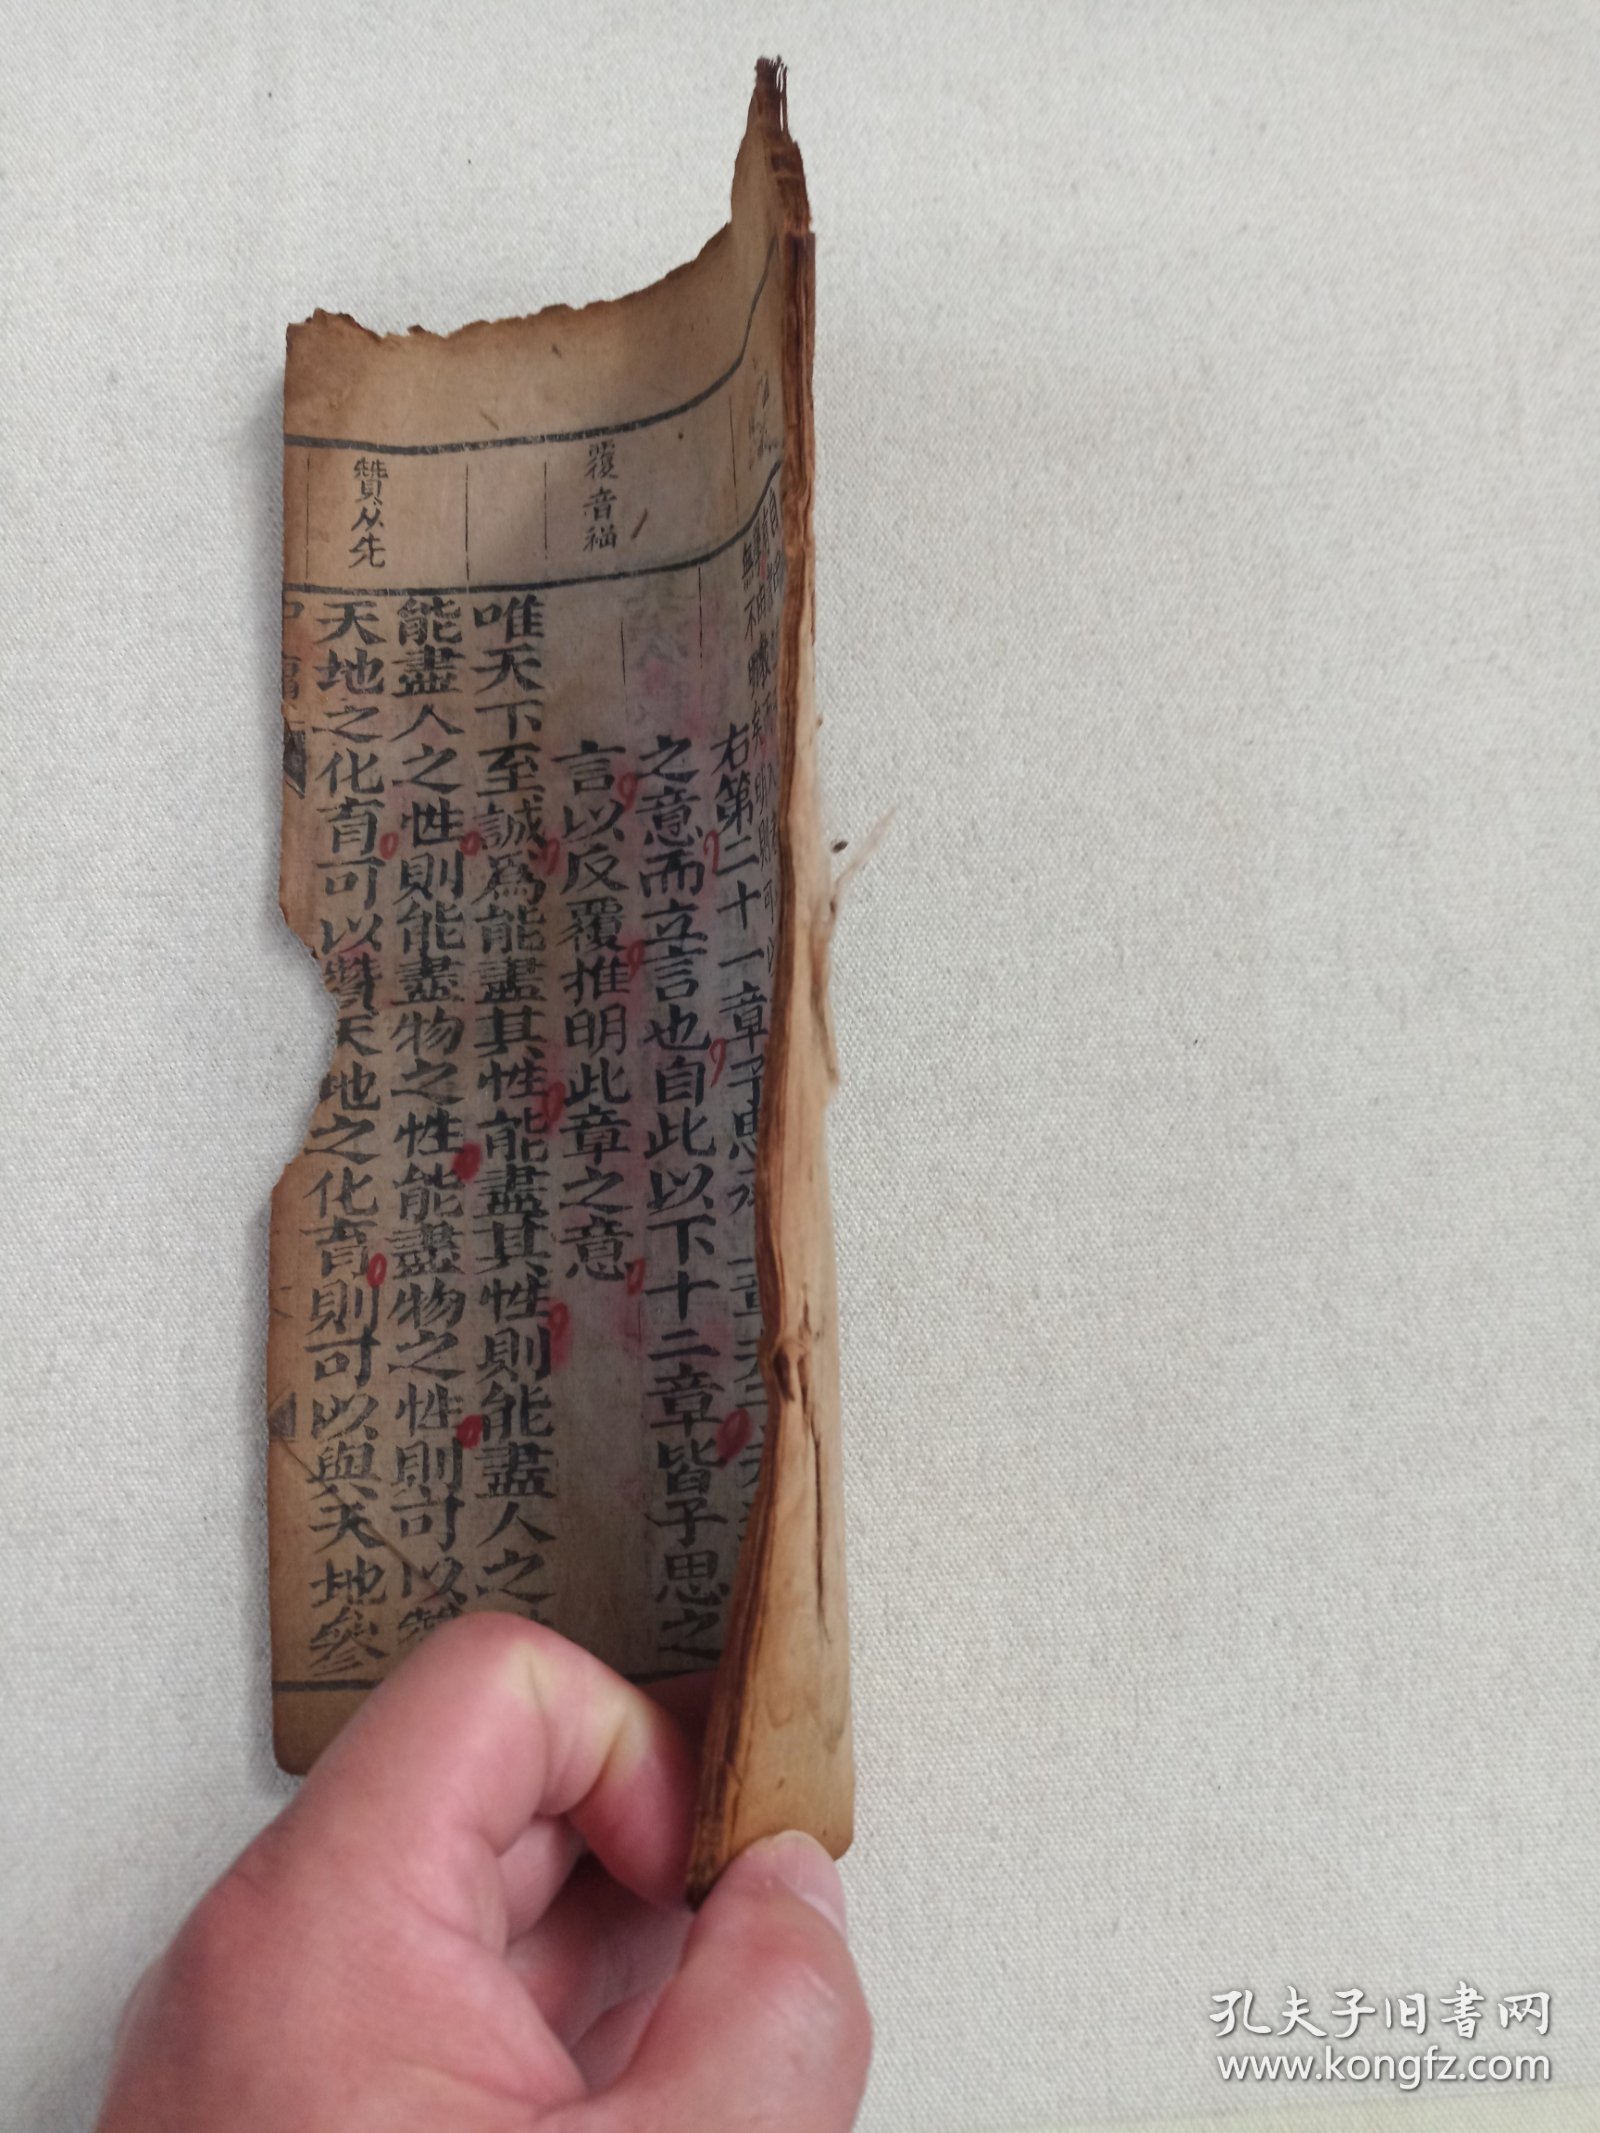 右第二十一章子思承
之意而立言也自此以下十二章皆子思之
言以反覆推明此章之意
唯天下至誠爲能盡其性能盡其性則能盡人之
能盡人之性則能盡物之性能盡物之性則可以
天地之化育可以贊天地之化育則可以與天地參
覆音福
贊从先
孔夫子旧书网
www.kongfz.com